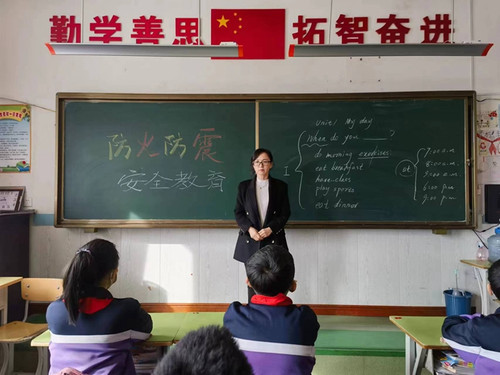 勤学善思 拓智奋进
防火防震
安全教育
Unit1 My day
When do you ?
do morning exercises
eat breakfast
have class
play sports
eat dinner
I
at
7:00 a.m.
9:00 p.m.